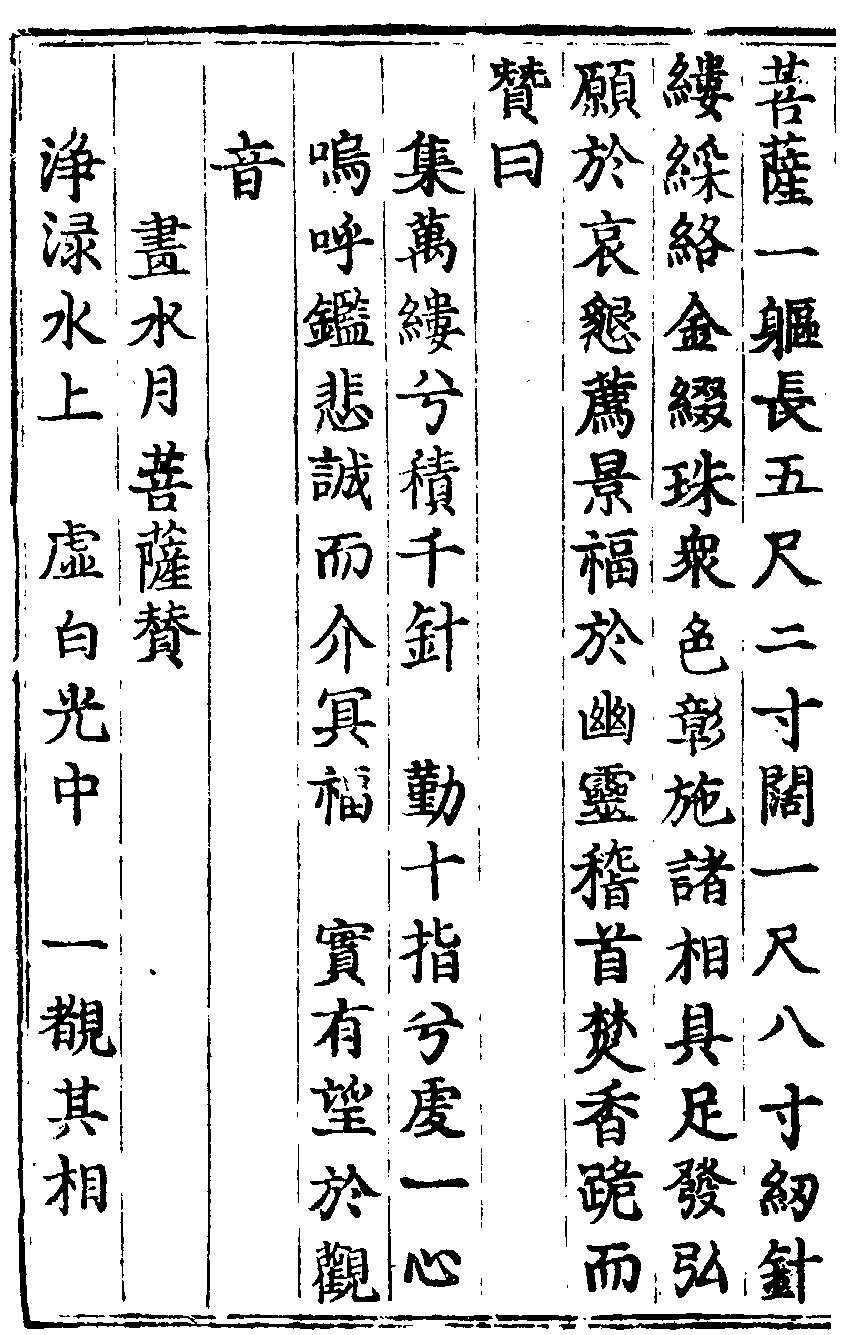 菩薩一軀長五尺二寸闊一尺八寸紉針
縷綵絡金綴珠衆色彰施諸相具足發弘
願於哀懇薦景福於幽靈稽首焚香跪而
贊曰
集萬縷兮積千針　勤十指兮虔一心
嗚呼鑑悲誠而介冥福　實有望於觀
音
畫水月菩薩贊
淨淥水上　虛白光中　一覩其相